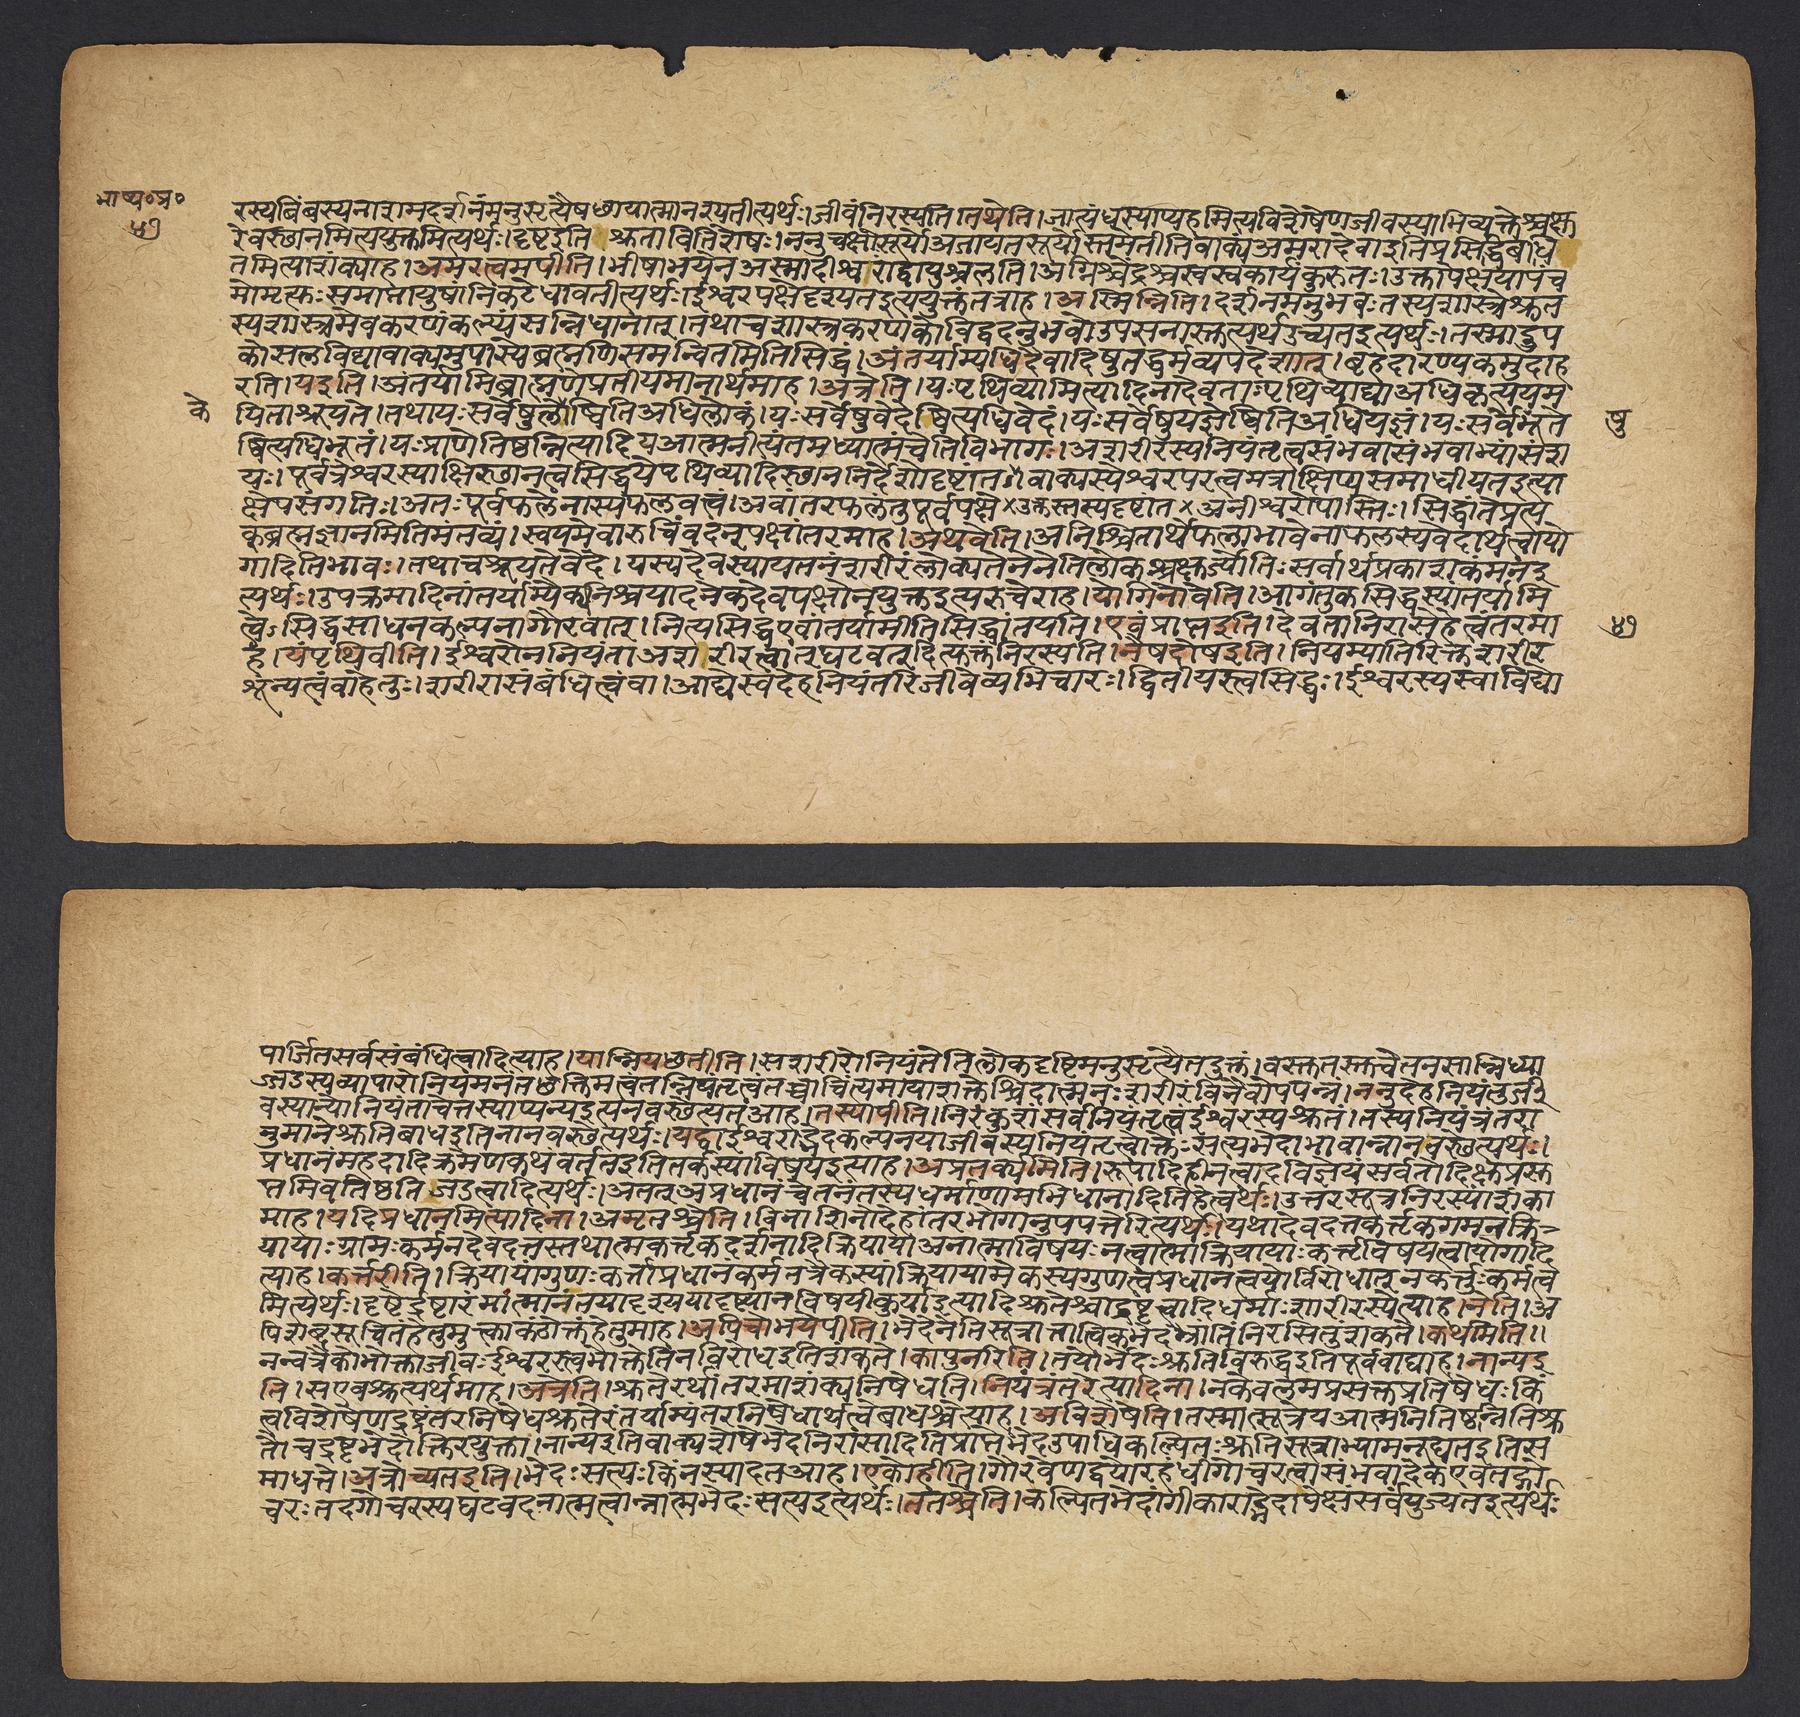 भाष्य॰प्र॰
५७
रस्यबिंबस्यनाशमदर्शनमनुसृत्यैषछायात्मानश्यतीत्यर्थः।जीवंनिरस्यति।तथेति।जात्यंधस्याप्यहमित्यविशेषेणजीवस्याभिव्यक्तेश्चक्षु
रेवस्थानमित्ययुक्तमित्यर्थः।दृष्टइति।श्रुताविति शेषः।ननुचक्षोःसूर्योअजायतसूर्योस्तमेतीतिवाक्यंअमरादेवाइतिप्रसिद्धिबाधि
तमित्याशंक्याह।अमरत्वमपीति।भीषाभयेनअस्मादीश्वराद्वायुश्चलति।अग्निश्चेंद्रश्चस्वस्वकार्यंकुरुतः।उक्तापेक्षयापंच
मोमृत्युःसमाप्तायुषांनिकटेधावतीत्यर्थः।ईश्वरपक्षेदृश्यतइत्ययुक्तंतत्राह।अस्मिन्निति।दर्शनमनुभवःतस्यशास्त्रश्रुत
स्यशास्त्रमेवकरणंकल्प्यंसन्निधानात्।तथाचशास्त्रकरणकोविद्वदनुभवोउपसनास्तुत्यर्थउच्यतइत्यर्थः।तस्मादुप
कोसलविद्यावाक्यमुपास्येब्रह्मणिसमन्वितमितिसिद्धं।अंतर्याम्यधिदैवादिषुतद्धर्मव्यपदेशात्।बृहदारण्यकमुदाह
रति।यइति।अंतर्यामिब्राह्मणेप्रतीयमानार्थमाह।अत्रेति।यःपृथिव्यामित्यादिनादेवताःपृथिव्याद्याअधिकृत्ययम
यिताश्रूयते।तथायःसर्वेषुलोष्वितिअधिलोकं।यःसर्वेषुवेदेष्वित्यधिवेदं।यःसर्वेषुयज्ञेष्वितिअधियज्ञं।यःसर्वेभूते
के
षु
ष्वित्यधिभूतं।यःप्राणेतिष्ठन्नित्यादियआत्मनीत्यंतमध्यात्मंचेतिविभागः।अशरीरस्यनियंतृत्वसंभवासंभवाभ्यांसंश
यः।पूर्वत्रेश्वरस्याक्षिस्थानत्वसिद्धयेपृथिव्यादिस्थाननिर्देशोदृष्टांतवाक्यस्येश्वरपरत्वमत्राक्षिप्यसमाधीयतइत्या
क्षेपसंगतिः।अतःपूर्वफलेनास्यफलवत्त्वं।अवांतरफलंतुपूर्वपक्षे×उक्तस्तस्यदृष्टांत×अनीश्वरोपास्तिः।सिद्धांतेप्रत्य
कुब्रह्मज्ञानमितिमंतव्यं।स्वयमेवारुचिंवदन्पक्षांतरमाह।अथवेति।अनिश्चितार्थेफलाभावेनाफलस्यवेदार्थत्वायो
गादितिभावः।तथाचश्रूयतेवेदं।यस्यदेवस्यायतनंशरीरंलोक्यतेनेनेतिलोकश्चक्षुर्ज्योतिःसर्वार्थप्रकाशकंमनइ
त्यर्थः।उपक्रमादिनांतर्याम्यैक्यनिश्चयादनेकदेवपक्षोनयुक्तइत्यरुचेराह।योगिनोवेति।आगंतुकसिद्धस्यांतर्यामि
त्वेऽसिद्धसाधनकल्पनागौरवात्।नित्यसिद्धएवांतर्यामीतिसिद्धांतयति।एवंप्राप्तइति।देवतानिरासेहेत्वंतरमा
५७
ह।यंपृथिवीति।ईश्वरोननियंताअशरीरत्वात्घटवत्इत्युक्तंनिरस्यति।नैषदोषइति।नियम्यातिरिक्तशरीर
शून्यत्वंवाहेतुः।शरीरासंबंधित्वंवा।आद्येस्वदेहनियंतरिजीवेव्यभिचारः।द्वितीयस्त्वसिद्धः।ईश्वरस्यस्वाविद्यो
पार्जितसर्वसंबंधित्वादित्याह।यान्नियछतीति।सशरीरोनियंतेतिलोकदृष्टिमनुसृत्यैतदुक्तं।वस्तुतस्तुचेतनसान्निध्या
ज्जडस्यव्यापारोनियमनंतछक्तिमत्वंतन्नियंतृत्वंतच्चाचिंत्यमायाशक्तेश्चिदात्मनःशरीरंविनैवोपपन्नं।ननुदेहनियंतुर्जी
वस्यान्योनियंताचेत्तस्याप्यन्यइत्यनवस्थेत्यतआह।तस्यापीति।निरंकुशंसर्वनियंतृत्वंईश्वरस्यश्रुतं।तस्यनियंत्रंतरा
नुमानेश्रुतिबाधइतिनानवस्थेत्यर्थः।यद्वाईश्वराद्भेदकल्पनयाजीवस्यनियंतृत्वोक्तेःसत्यभेदाभावान्नानवस्थेत्यर्थः।
प्रधानंमहदादिक्रमेणकथंवर्ततइतितर्कस्याविषयइत्याह।अप्रतर्क्यमिति।रूपादिहीनत्वादविज्ञेयंसर्वतोदिक्षुप्रसु
प्तमिवतिष्ठतिजडत्वादित्यर्थः।अतत्अप्रधानंचेतनंतस्यधर्माणामभिधानादितिहेत्वर्थः।उत्तरसूत्रनिरस्यांशंका
माह।यदिप्रधानमित्यादिना।अमृतश्चेति।विनाशिनोदेहांतरभोगानुपपत्तेरित्यर्थः।यथादेवदत्तकर्तृकगमनक्रि-
यायाःग्रामःकर्मनदेवदत्तस्तथात्मकर्तृकदर्शनादिक्रियायाअनात्माविषयःनत्वात्माक्रियायाःकर्तृविषयत्वायोगादि
त्याह।कर्त्तरीति।क्रियायांगुणःकर्त्ताप्रधानंकर्मतत्रैकस्यांक्रियायामेकस्यगुणत्वप्रधानत्वयोर्विरोधात्नकर्त्तुःकर्मत्व
मित्यर्थः।दृष्टेर्द्रष्टारंमात्मानंतयादृश्ययादृष्ट्यानविषयीकुर्याइत्यादिश्रुतेश्चाद्रष्टृत्वादिधर्माःशारीरस्येत्याह।नेति।अ
पिशब्दसूचितंहेतुमुक्त्वाकंठोक्तंहेतुमाह।अपिचोभयेपीति।भेदेनेतिसूत्रात्तात्विकभेदभ्रांतिंनिरसितुंशंकते।कथमिति॥
नन्वत्रैकोभोक्ताजीवःईश्वरस्त्वभोक्तेतिनविरोधइतिशंकते।कापुनरिति।तयोर्भेदःश्रुतिविरुद्धइतिपूर्ववाद्याह।नान्यइ
ति।सएवश्रुत्यर्थमाह।अत्रेति।श्रुतेरर्थांतरमाशंक्यनिषेधति।नियंत्रंतरेत्यादिना।नकेवलमप्रसक्तप्रतिषेधःकिं
त्वविशेषेणद्रष्ट्रंतरनिषेधश्रुतेरंतर्याम्यंतरनिषेधार्थत्वेबाधश्चेत्याह।अविशेषेति।तस्मात्सूत्रेयआत्मनितिष्ठन्नितिश्रु
तौचद्रष्टृभेदोक्तिरयुक्ता।नान्यइतिवाक्यशेषेभेदनिरासादितिप्राप्तेभेदउपाधिकल्पितःश्रुतिसूत्राभ्यामनूद्यतइतिस
माधत्ते।अत्रोच्यतइति।भेदःसत्यःकिंनस्यादतआह।एकोहीति।गौरवेणद्वयोरहंधीगोचरत्वासंभवादेकएवतद्गो
चरःतदगोचरस्यघटवदनात्मत्वान्नात्मभेदःसत्यइत्यर्थः।ततश्चेति।कल्पितभेदांगीकाराद्भेदापेक्षंसर्वंयुज्यतइत्यर्थः